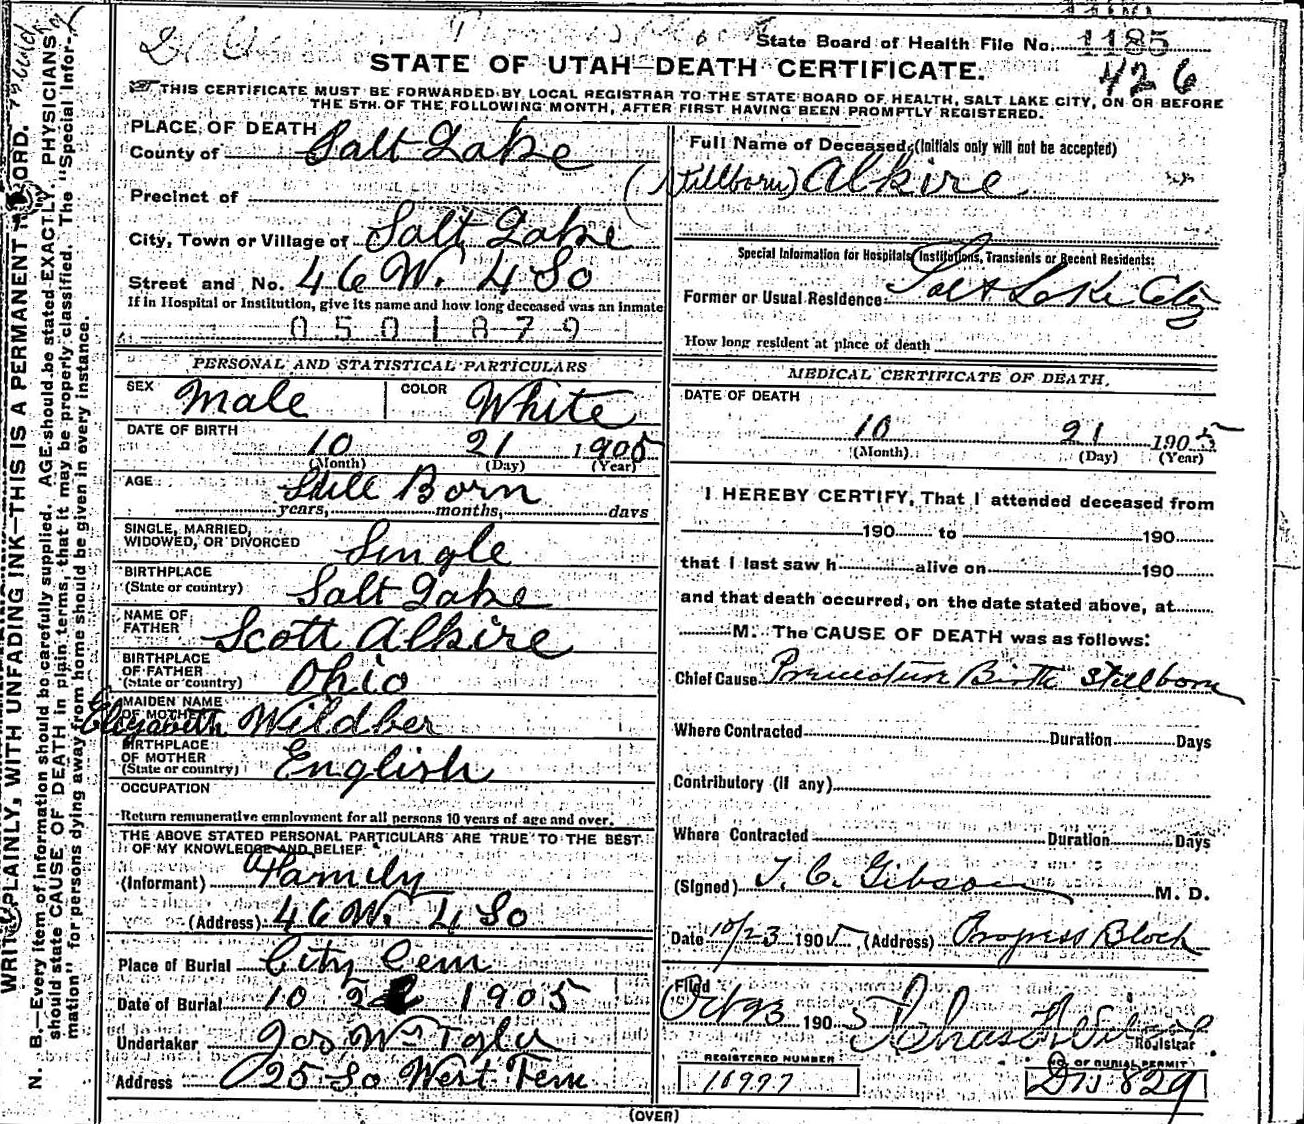 State Board of Health File No. 1185
426
STATE OF UTAH—DEATH CERTIFICATE.
THIS CERTIFICATE MUST BE FORWARDED BY LOCAL REGISTRAR TO THE STATE BOARD OF HEALTH, SALT LAKE CITY, ON OR BEFORE
THE 5TH OF THE FOLLOWING MONTH, AFTER FIRST HAVING BEEN PROMPTLY REGISTERED.
WRITE PLAINLY, WITH UNFADING INK—THIS IS A PERMANENT RECORD.
N. B.—Every item of information should be carefully supplied. AGE should be stated EXACTLY. PHYSICIANS
should state CAUSE OF DEATH in plain terms, that it may be properly classified. The "Special Infor-
mation" for persons dying away from home should be given in every instance.
PLACE OF DEATH
County of Salt Lake
Precinct of
City, Town or Village of Salt Lake
Street and No. 46 W. 4 So
If in Hospital or Institution, give its name and how long deceased was an inmate
0501879
PERSONAL AND STATISTICAL PARTICULARS
SEX Male COLOR White
DATE OF BIRTH
10 21 1905
(Month) (Day) (Year)
AGE Still Born
years, months, days
SINGLE, MARRIED,
WIDOWED, OR DIVORCED Single
BIRTHPLACE
(State or country) Salt Lake
NAME OF
FATHER Scott Alkire
BIRTHPLACE
OF FATHER
(State or country) Ohio
MAIDEN NAME
OF MOTHER Elizabeth Wildber
BIRTHPLACE
OF MOTHER
(State or country) English
OCCUPATION
Return remunerative employment for all persons 10 years of age and over.
THE ABOVE STATED PERSONAL PARTICULARS ARE TRUE TO THE BEST
OF MY KNOWLEDGE AND BELIEF
(Informant) Family
(Address) 46 W. 4 So
Place of Burial City Cem
Date of Burial 10 1905
Undertaker Jos Wm Taylor
Address 25 So West Tem
Full Name of Deceased (Initials only will not be accepted)
(Stillborn) Alkire
Special Information for Hospitals, Institutions, Transients or Recent Residents:
Former or Usual Residence Salt Lake City
How long resident at place of death
MEDICAL CERTIFICATE OF DEATH.
DATE OF DEATH
10 21 1905
(Month) (Day) (Year)
I HEREBY CERTIFY, That I attended deceased from
190 to 190
that I last saw h alive on 190
and that death occurred, on the date stated above, at
M. The CAUSE OF DEATH was as follows:
Chief Cause Premature Birth Stillborn
Where Contracted Duration Days
Contributory (if any)
Where Contracted Duration Days
(Signed) T. C. Gibson M. D.
Date 10/23 1905 (Address) Progress Block
Filed
Oct 23 1905
Registrar
REGISTERED NUMBER
NO OF BURIAL PERMIT
16977
829
(OVER)